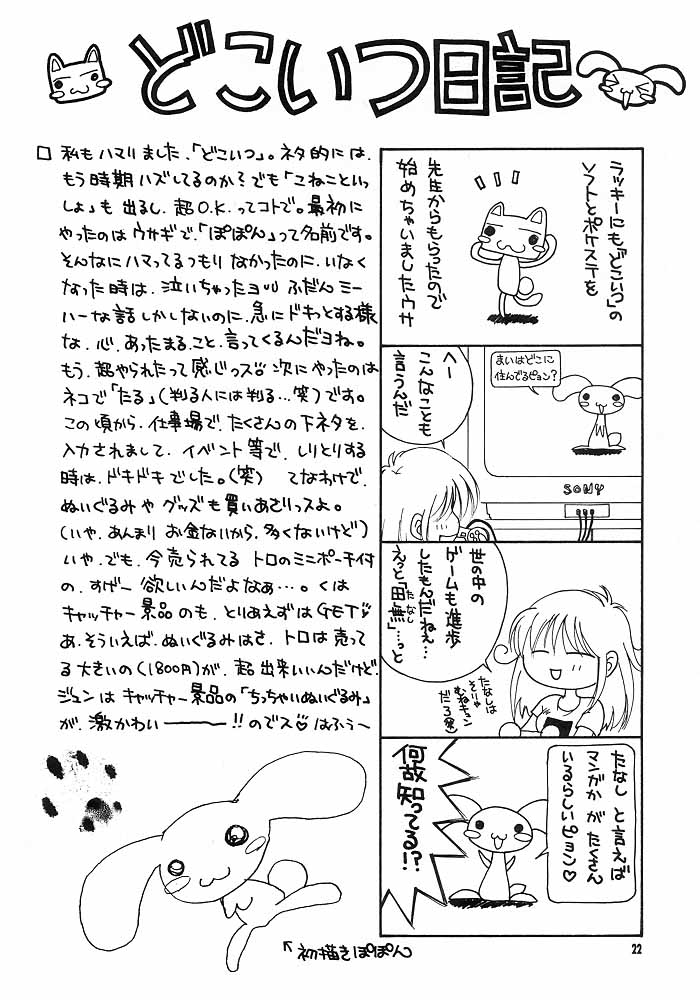 どこいつ日記
□ 私もハマりました、「どこいつ」。ネタ的には、
もう時期ハズしてるのか?でも「こねこといっ
しょ」も出るし、超O.K.ってコトで。最初に
やったのはウサギで、「ぽぽん」って名前です。
そんなにハマってるつもりなかったのに、いなく
なった時は、泣いちゃったヨ ふだんミー
ハーな話しかしないのに、急にドキっとする様
な、心、あったまること、言ってくるんだヨね。
もう、超やられたって感じっス 次にやったのは
ネコで「たる」(判る人には判る…笑)です。
この頃から、仕事場で、たくさんの下ネタを、
入力されまして、イベント等で、しりとりする
時は、ドキドキでした。(笑) てなわけで、
ぬいぐるみやグッズも買いあさりっスよ。
(いや、あんまりお金ないから、多くないけど)
いや、でも、今売られてるトロのミニポーチ付
の、すげー欲しいんだよなぁ…。くは
キャッチャー景品のも、とりあえずはGET♡
あ、そういえば、ぬいぐるみはさ、トロは売って
る大きいの(1800円)が、超出来いいんだけど、
ジュンはキャッチャー景品の「ちっちゃいぬいぐるみ」
が、激かわい――――!!のでス♡はふぅ〜
ラッキーにも「どこいつ」の
ソフトとポケステを
先生からもらったので
始めちゃいましたウサ
まいはどこに
住んでるピョン?
へー
こんなことも
言うんだ
SONY
世の中の
ゲームも進歩
したもんだねぇ…
えっと「田無」…っと
たなし
たなしは
そりゃ
むねキュン
だろ(笑)
たなし と言えば
マンガか が たくさん
いるらしいピョン♡
何故知ってる!?
↖初描きぽぽん
22